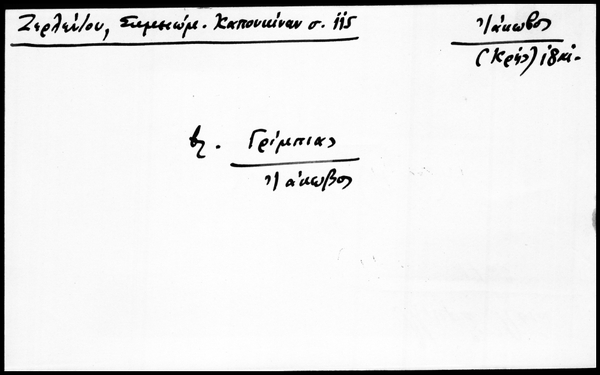 Ζερλέντου, Σημειώμ. Καπουκίνων σ. 115
Ἰάκωβος
(Κρής)
βλ. Γρίμπιας
Ἰάκωβος